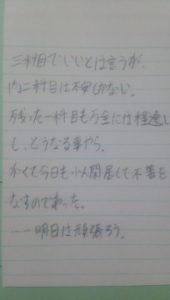 三科目でいいとは言うが、
内二科目は不安しかない。
残った一科目も万全には程遠い
し、どうなる事やら。
かくて今日も小人閑居して不善を
なすのであった。
――明日は頑張ろう。